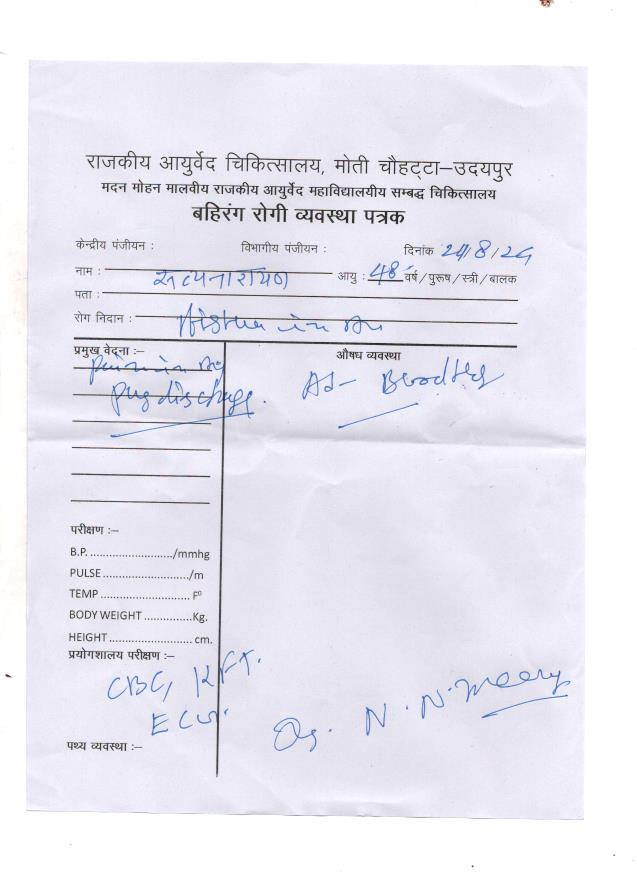 राजकीय आयुर्वेद चिकित्सालय, मोती चौहट्टा–उदयपुर
मदन मोहन मालवीय राजकीय आयुर्वेद महाविद्यालयीय सम्बद्ध चिकित्सालय
बहिरंग रोगी व्यवस्था पत्रक
केन्द्रीय पंजीयन : विभागीय पंजीयन : दिनांक 24/8/24
नाम : सत्यनारायण आयु : 48 वर्ष/पुरूष/स्त्री/बालक
पता :
रोग निदान : in
प्रमुख वेदना :–
औषध व्यवस्था
pain in
pus discharge.
Ad–
परीक्षण :–
B.P. ........................./mmhg
PULSE ........................../m
TEMP ........................... F⁰
BODY WEIGHT ..............Kg.
HEIGHT ......................... cm.
प्रयोगशालय परीक्षण :–
CBC, KFT.
N. N.
पथ्य व्यवस्था :–